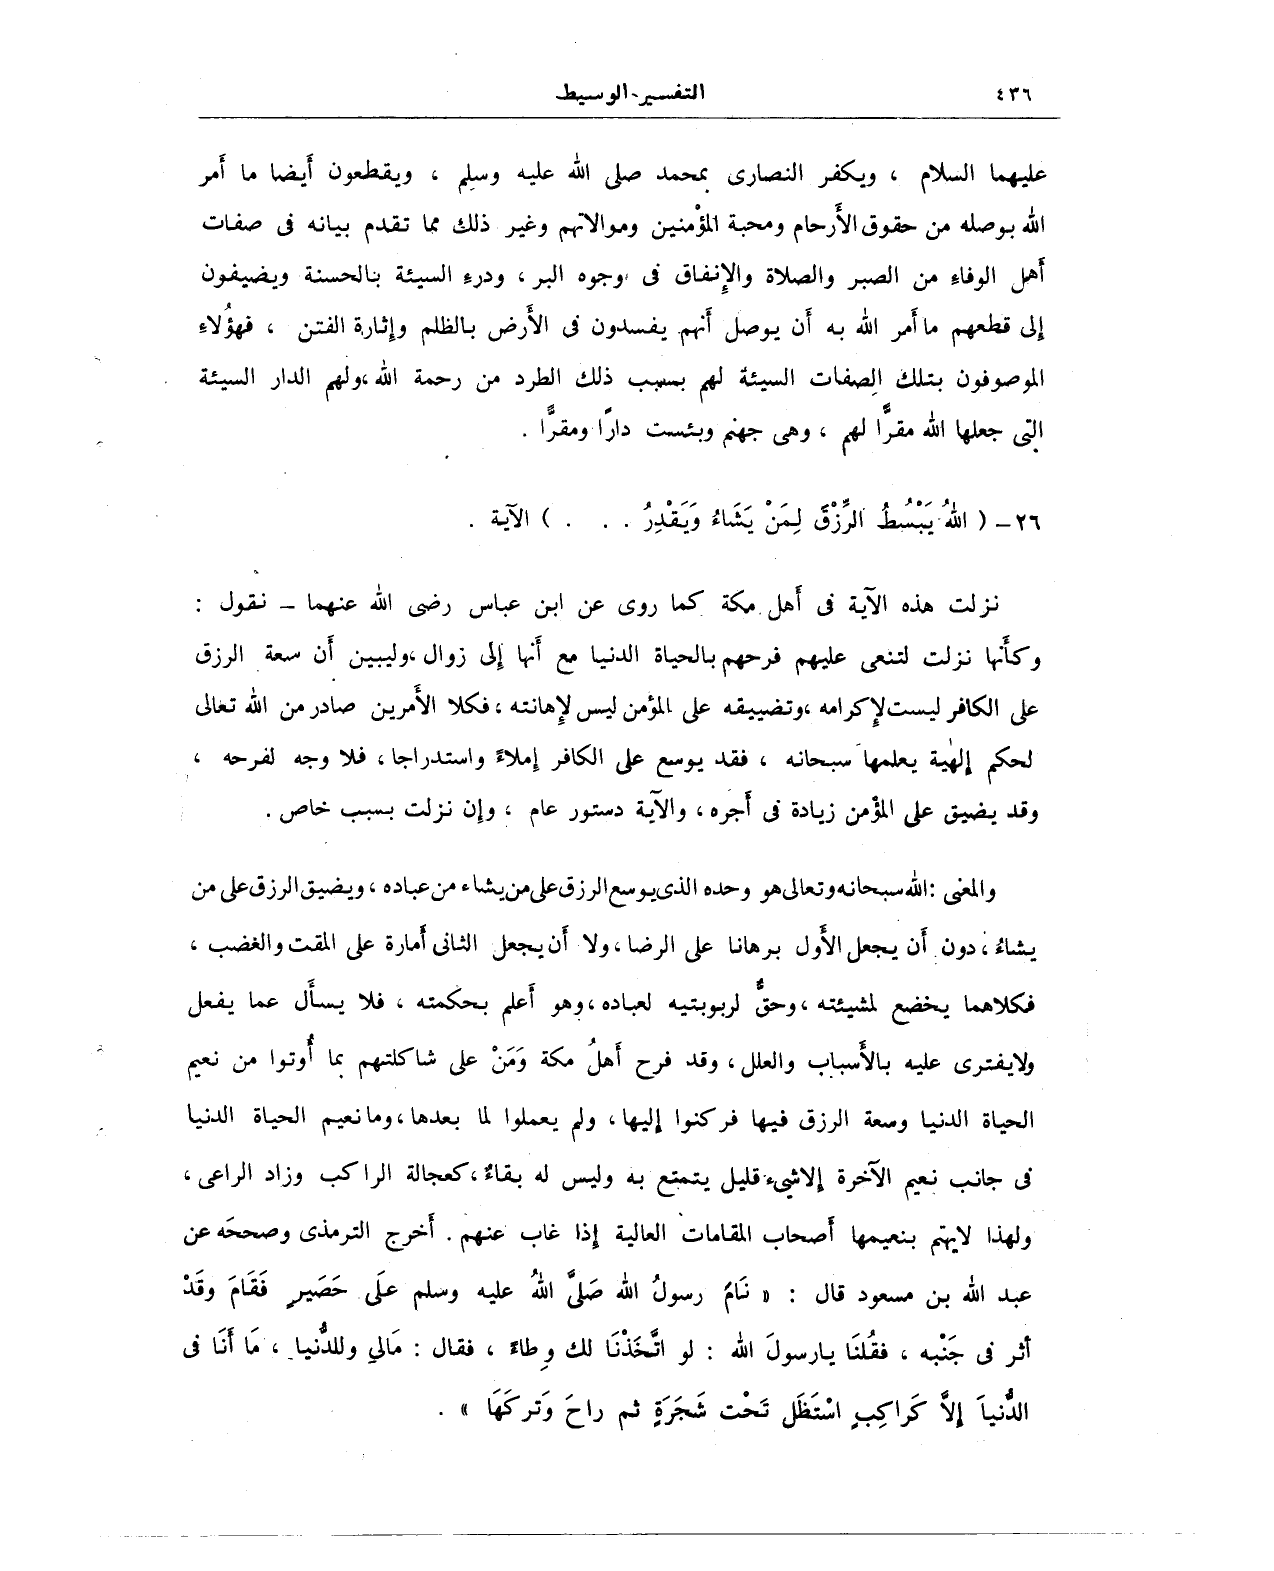 ٤٣٦ التفسير-الوسيط
عليهما السلام ، ويكفر النصارى بمحمد صلى الله عليه وسلم ، ويقطعون أيضا ما أمر
الله بوصله من حقوق الأَرحام ومحبة المؤْمنين وموالاتهم وغير ذلك مما تقدم بيانه فى صفات
أهل الوفاءِ من الصبر والصلاة والإِنفاق فى وجوه البر ، ودرءِ السيئة بالحسنة ويضيفون
إلى قطعهم ما أمر الله به أن يوصل أنهم يفسدون فى الأَرض بالظلم وإثارة الفتن ، فهؤُلاءِ
الموصوفون بتلك الصفات السيئة لهم بسبب ذلك الطرد من رحمة الله ،ولهم الدار السيئة
التى جعلها الله مقرًّا لهم ، وهى جهنم وبئست دارًا ومقرًّا .
٢٦ – ( اللهُ يَبْسُطُ الرِّزْقَ لِمَنْ يَشَاءُ وَيَقْدِرُ . . . ) الآية .
نزلت هذه الآية فى أهل مكة كما روى عن ابن عباس رضى الله عنهما – نقول :
وكأنها نزلت لتنعى عليهم فرحهم بالحياة الدنيا مع أنها إلى زوال ،وليبين أن سعة الرزق
على الكافر ليست لإِكرامه ،وتضييقه على المؤمن ليس لإهانته ، فكلا الأَمرين صادر من الله تعالى
لحكم إلهية يعلمها سبحانه ، فقد يوسع على الكافر إملاءً واستدراجا ، فلا وجه لفرحه ،
وقد يضيق على المؤْمن زيادة فى أجره ، والآية دستور عام ، وإن نزلت بسبب خاص .
والمعنى :الله سبحانه وتعالى هو وحده الذى يوسع الرزق على من يشاء من عباده ، ويضيق الرزق على من
يشاءُ ، دون أن يجعل الأَول برهانا على الرضا ،ولا أن يجعل الثانى أمارة على المقت والغضب ،
فكلاهما يخضع لمشيئته ،وحقٌّ لربوبتيه لعباده ،وهو أعلم بحكمته ، فلا يسأَل عما يفعل
ولايفترى عليه بالأَسباب والعلل ، وقد فرح أهلُ مكة وَمَنْ على شاكلتهم بما أُوتوا من نعيم
الحياة الدنيا وسعة الرزق فيها فركنوا إليها ، ولم يعملوا لما بعدها ،وما نعيم الحياة الدنيا
فى جانب نعيم الآخرة إلاشىء قليل يتمتع به وليس له بقاءٌ ،كعجالة الراكب وزاد الراعى ،
ولهذا لايهتم بنعيمها أصحاب المقامات العالية إذا غاب عنهم . أخرج الترمذى وصححَه عن
عبد الله بن مسعود قال : « نَامَ رسولُ الله صَلىَّ اللهُ عليه وسلم علَى حَصَيرٍ فَقَامَ وقَدْ
أثر فى جَنْبه ، فقُلنَا يارسولَ الله : لو اتَّخَذْنَا لك وِطاءً ، فقال : مَالىِ وللدُّنيا ، مَا أَنَا فى
الدُّنياَ إلاَّ كَراكِبٍ اسْتَظَل تَحْت شَجَرَةٍ ثم راحَ وَتركَهَا » .